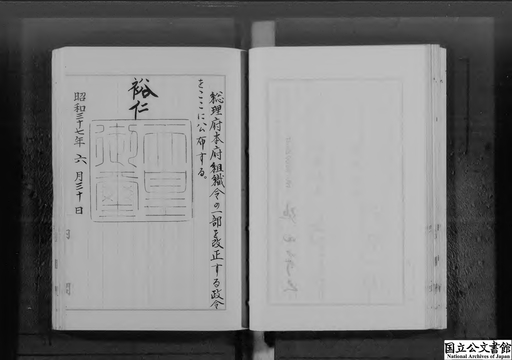 総理府本府組織令の一部を改正する政令
をここに公布する。
裕仁
天皇
御璽
昭和三十七年 六月三十日
国立公文書館
National Archives of Japan